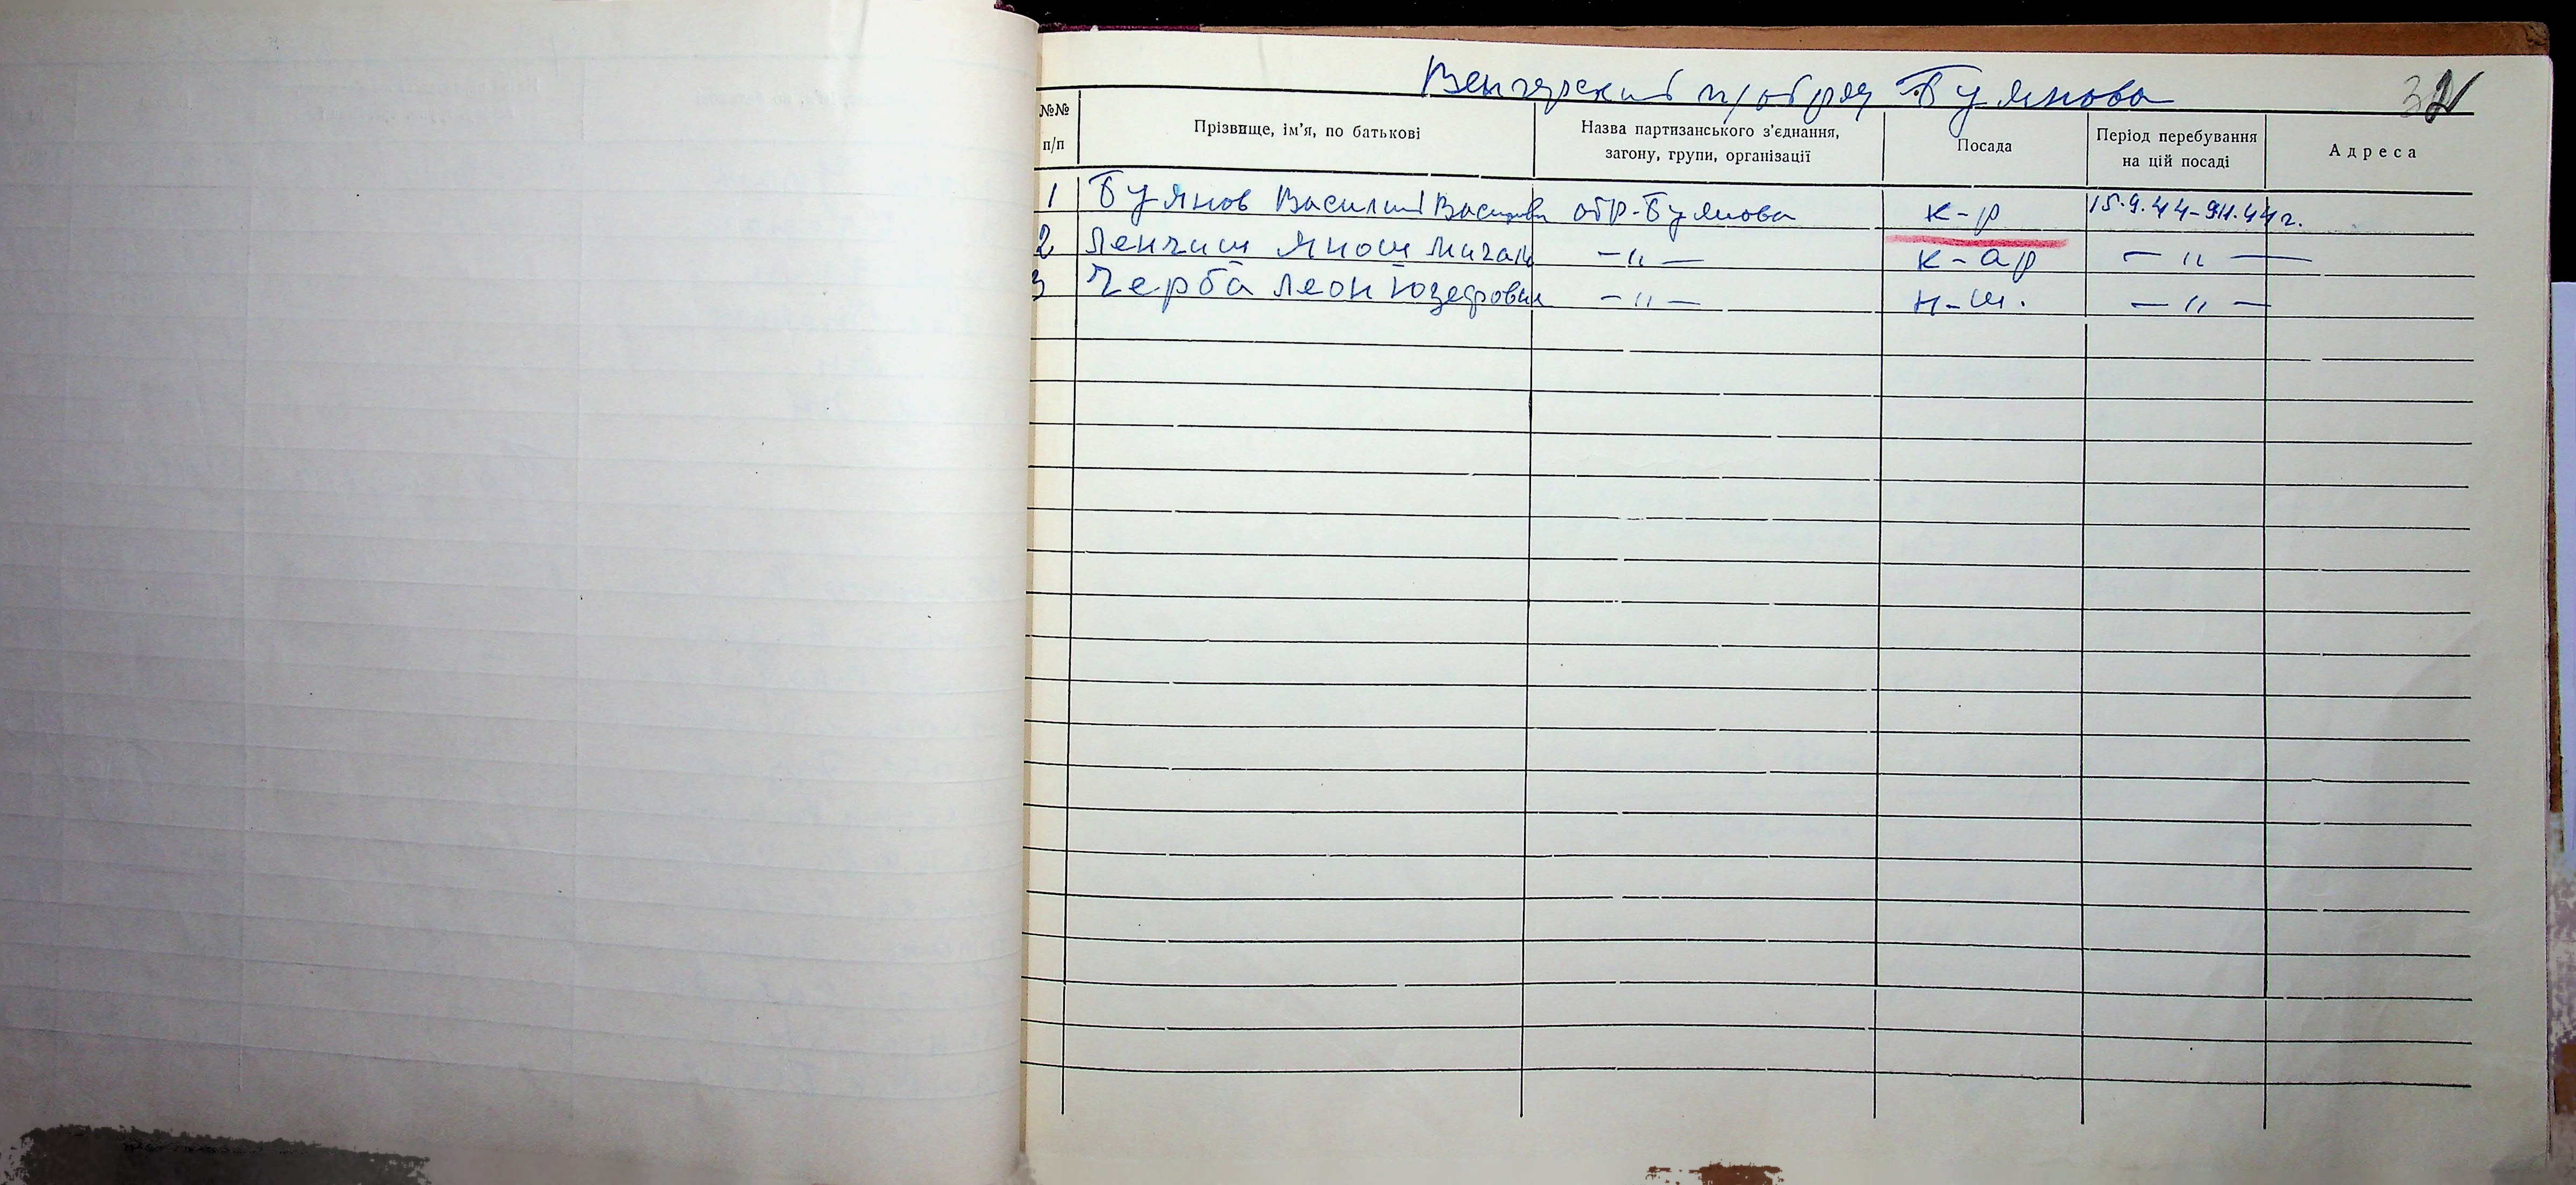 Венгерский п/отряд Буянова
32
№№ п/п
Прізвище, ім'я, по батькові
Назва партизанського з'єднання, загону, групи, організації
Посада
Період перебування на цій посаді
Адреса
1 Буянов Василий Василиевич отр-Буянова к-р 15.9.44-9.11.44 г.
2 Ленчиш Янош -〃- к-ар -〃-
3 Черба Леон Юзефович -〃- н-ш. -〃-